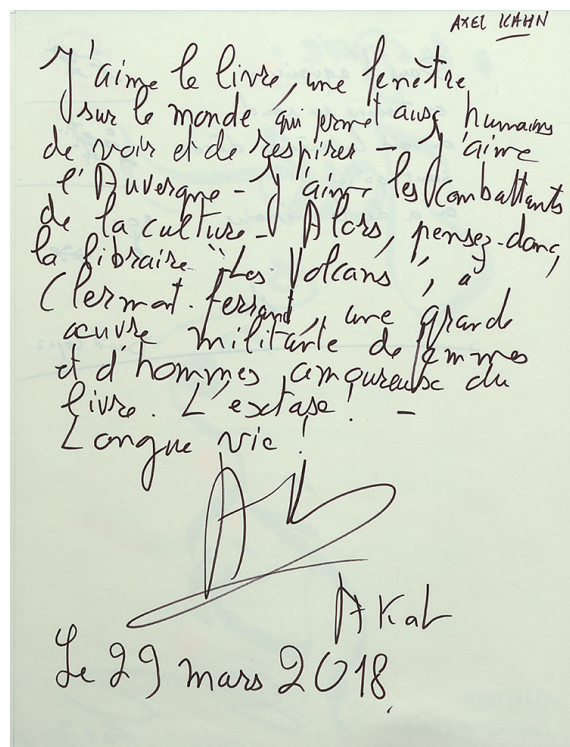 AXEL KAHN
J'aime le livre, une fenêtre
sur le monde qui permet aux humains
de voir et de respirer - J'aime
l'Auvergne - J'aime les combattants
de la culture - Alors, pensez-donc,
la libraire "Les Volcans", à
Clermont-Ferrand, une grande
œuvre militante de femmes
et d'hommes amoureuse du
livre. L'extase ! -
Longue vie !
AK
Le 29 mars 2018